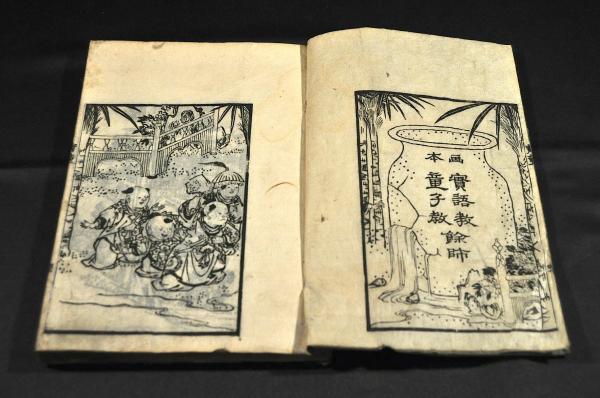 画本
實語教
童子教
餘師